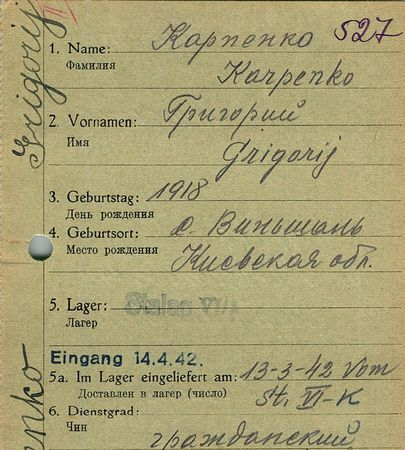 527
1. Name: Карпенко
Фамилия
Karpenko
2. Vornamen: Григорий
Имя
Grigorij
3. Geburtstag: 1918
День рождения
4. Geburtsort: с. Виньшань
Место рождения
Киевская обл.
5. Lager: Stalag VIII
Лагерь
Eingang 14.4.42.
5a. Im Lager eingeliefert am: 13-3-42 Vom
Доставлен в лагерь (число)
St. VI-K
6. Dienstgrad:
Чин
гражданский
Grigorij